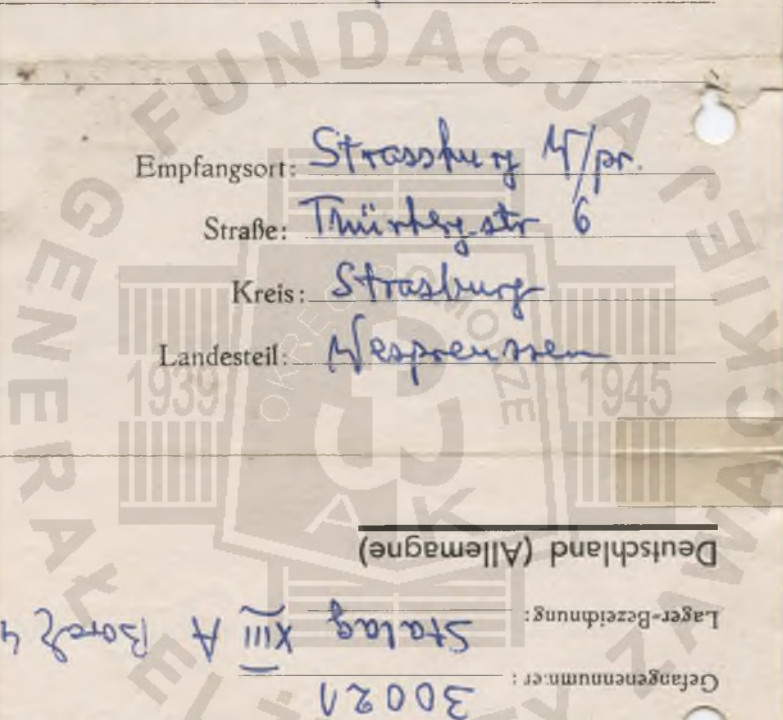 Empfangsort: Strassburg W/pr.
Straße: Thürberg.str 6
Kreis: Strasburg
Landesteil: Wespreussen
Deutschland (Allemagne)
Lager-Bezeichnung: Stalag XIII A
Gefangenennummer: 30021
FUNDACJA GENERAŁ ZAWACKIEJ
1939 1945
AK